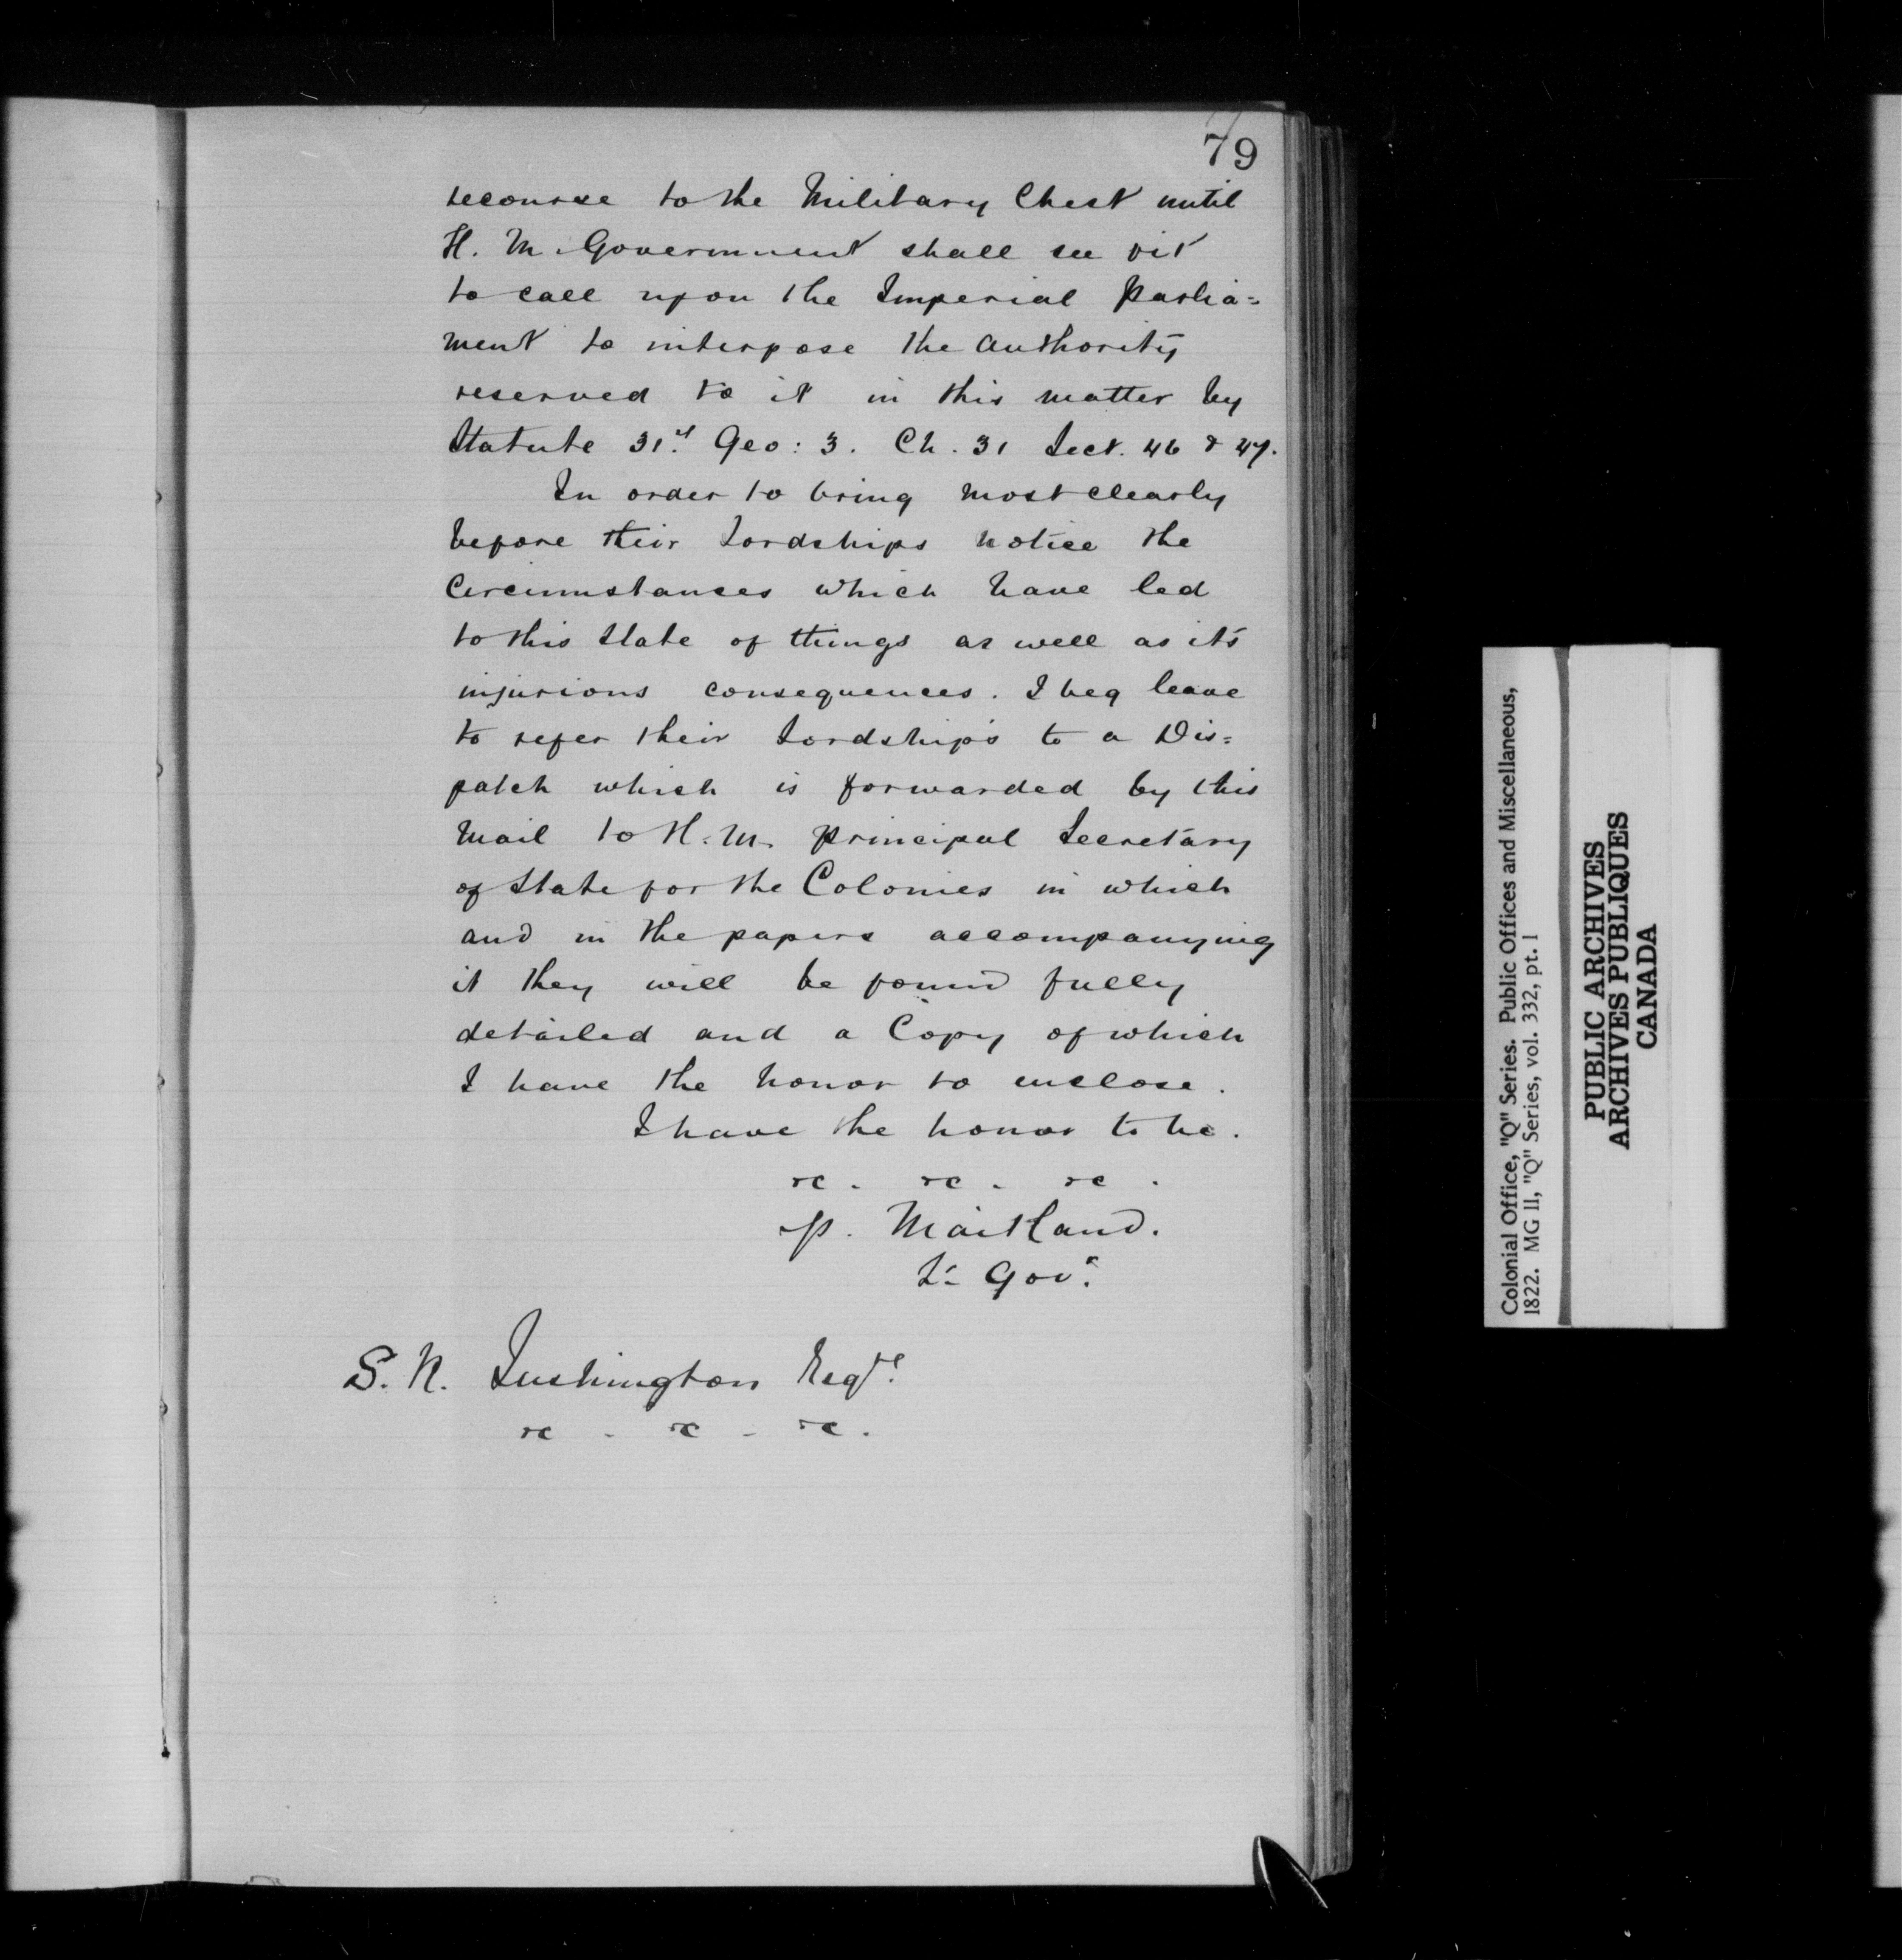 79
recourse to the Military Chest until
H. M. Government shall see fit
to call upon the Imperial Parlia=
ment to interpose the authority
reserved to it in this matter by
Statute 31st Geo: 3. Ch. 31 Sect. 46 & 47.
In order to bring most clearly
before their Lordships notice the
Circumstances which have led
to this State of things as well as it's
injurious consequences. I beg leave
to refer their Lordships to a Dis=
patch which is forwarded by this
Mail to H. M. Principal Secretary
of State for the Colonies in which
and in the papers accompanying
it they will be found fully
detailed and a Copy of which
I have the honor to enclose.
I have the honor to be.
&c. &c. &c.
P. Maitland.
Lt Govr.
S. R. Lushington Esqre.
&c - &c - &c.
Colonial Office, "Q" Series. Public Offices and Miscellaneous,
1822. MG 11, "Q" Series, vol. 332, pt. 1
PUBLIC ARCHIVES
ARCHIVES PUBLIQUES
CANADA